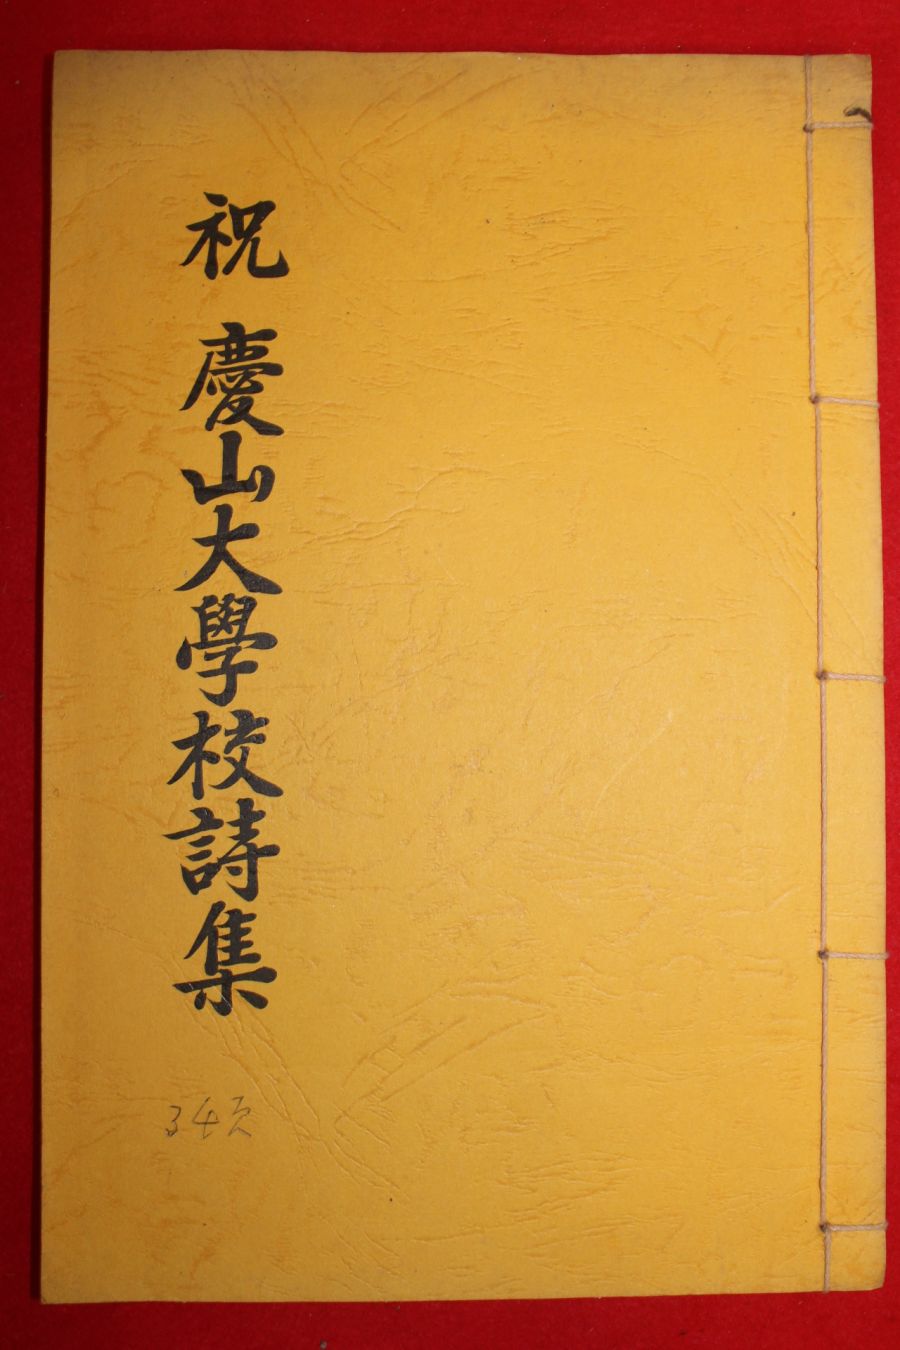 祝 慶山大學校詩集
34页